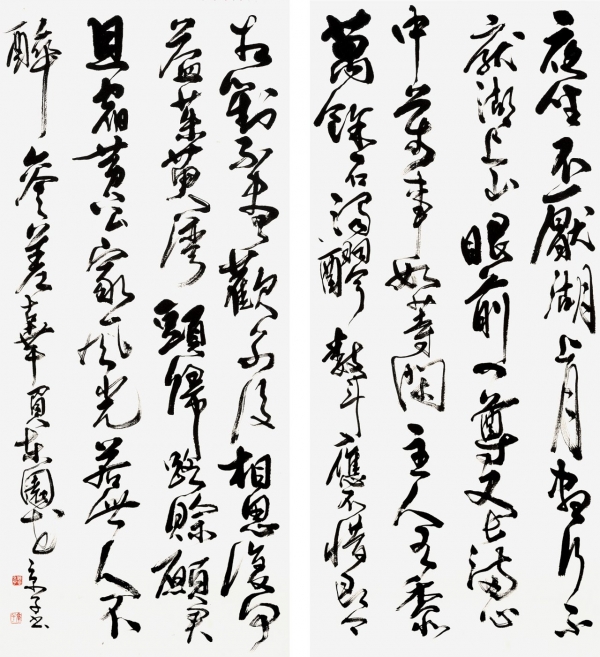 夜坐不厭湖上月晝行不
厭湖上山眼前一尊又長滿心
中萬事如等閑主人有黍
萬餘石濁醪數斗應不惜即今
相對不盡歡別後相思復何
益茱萸灣頭歸路賒願君
且宿黃公家風光若此人不
醉參差辜負東園花